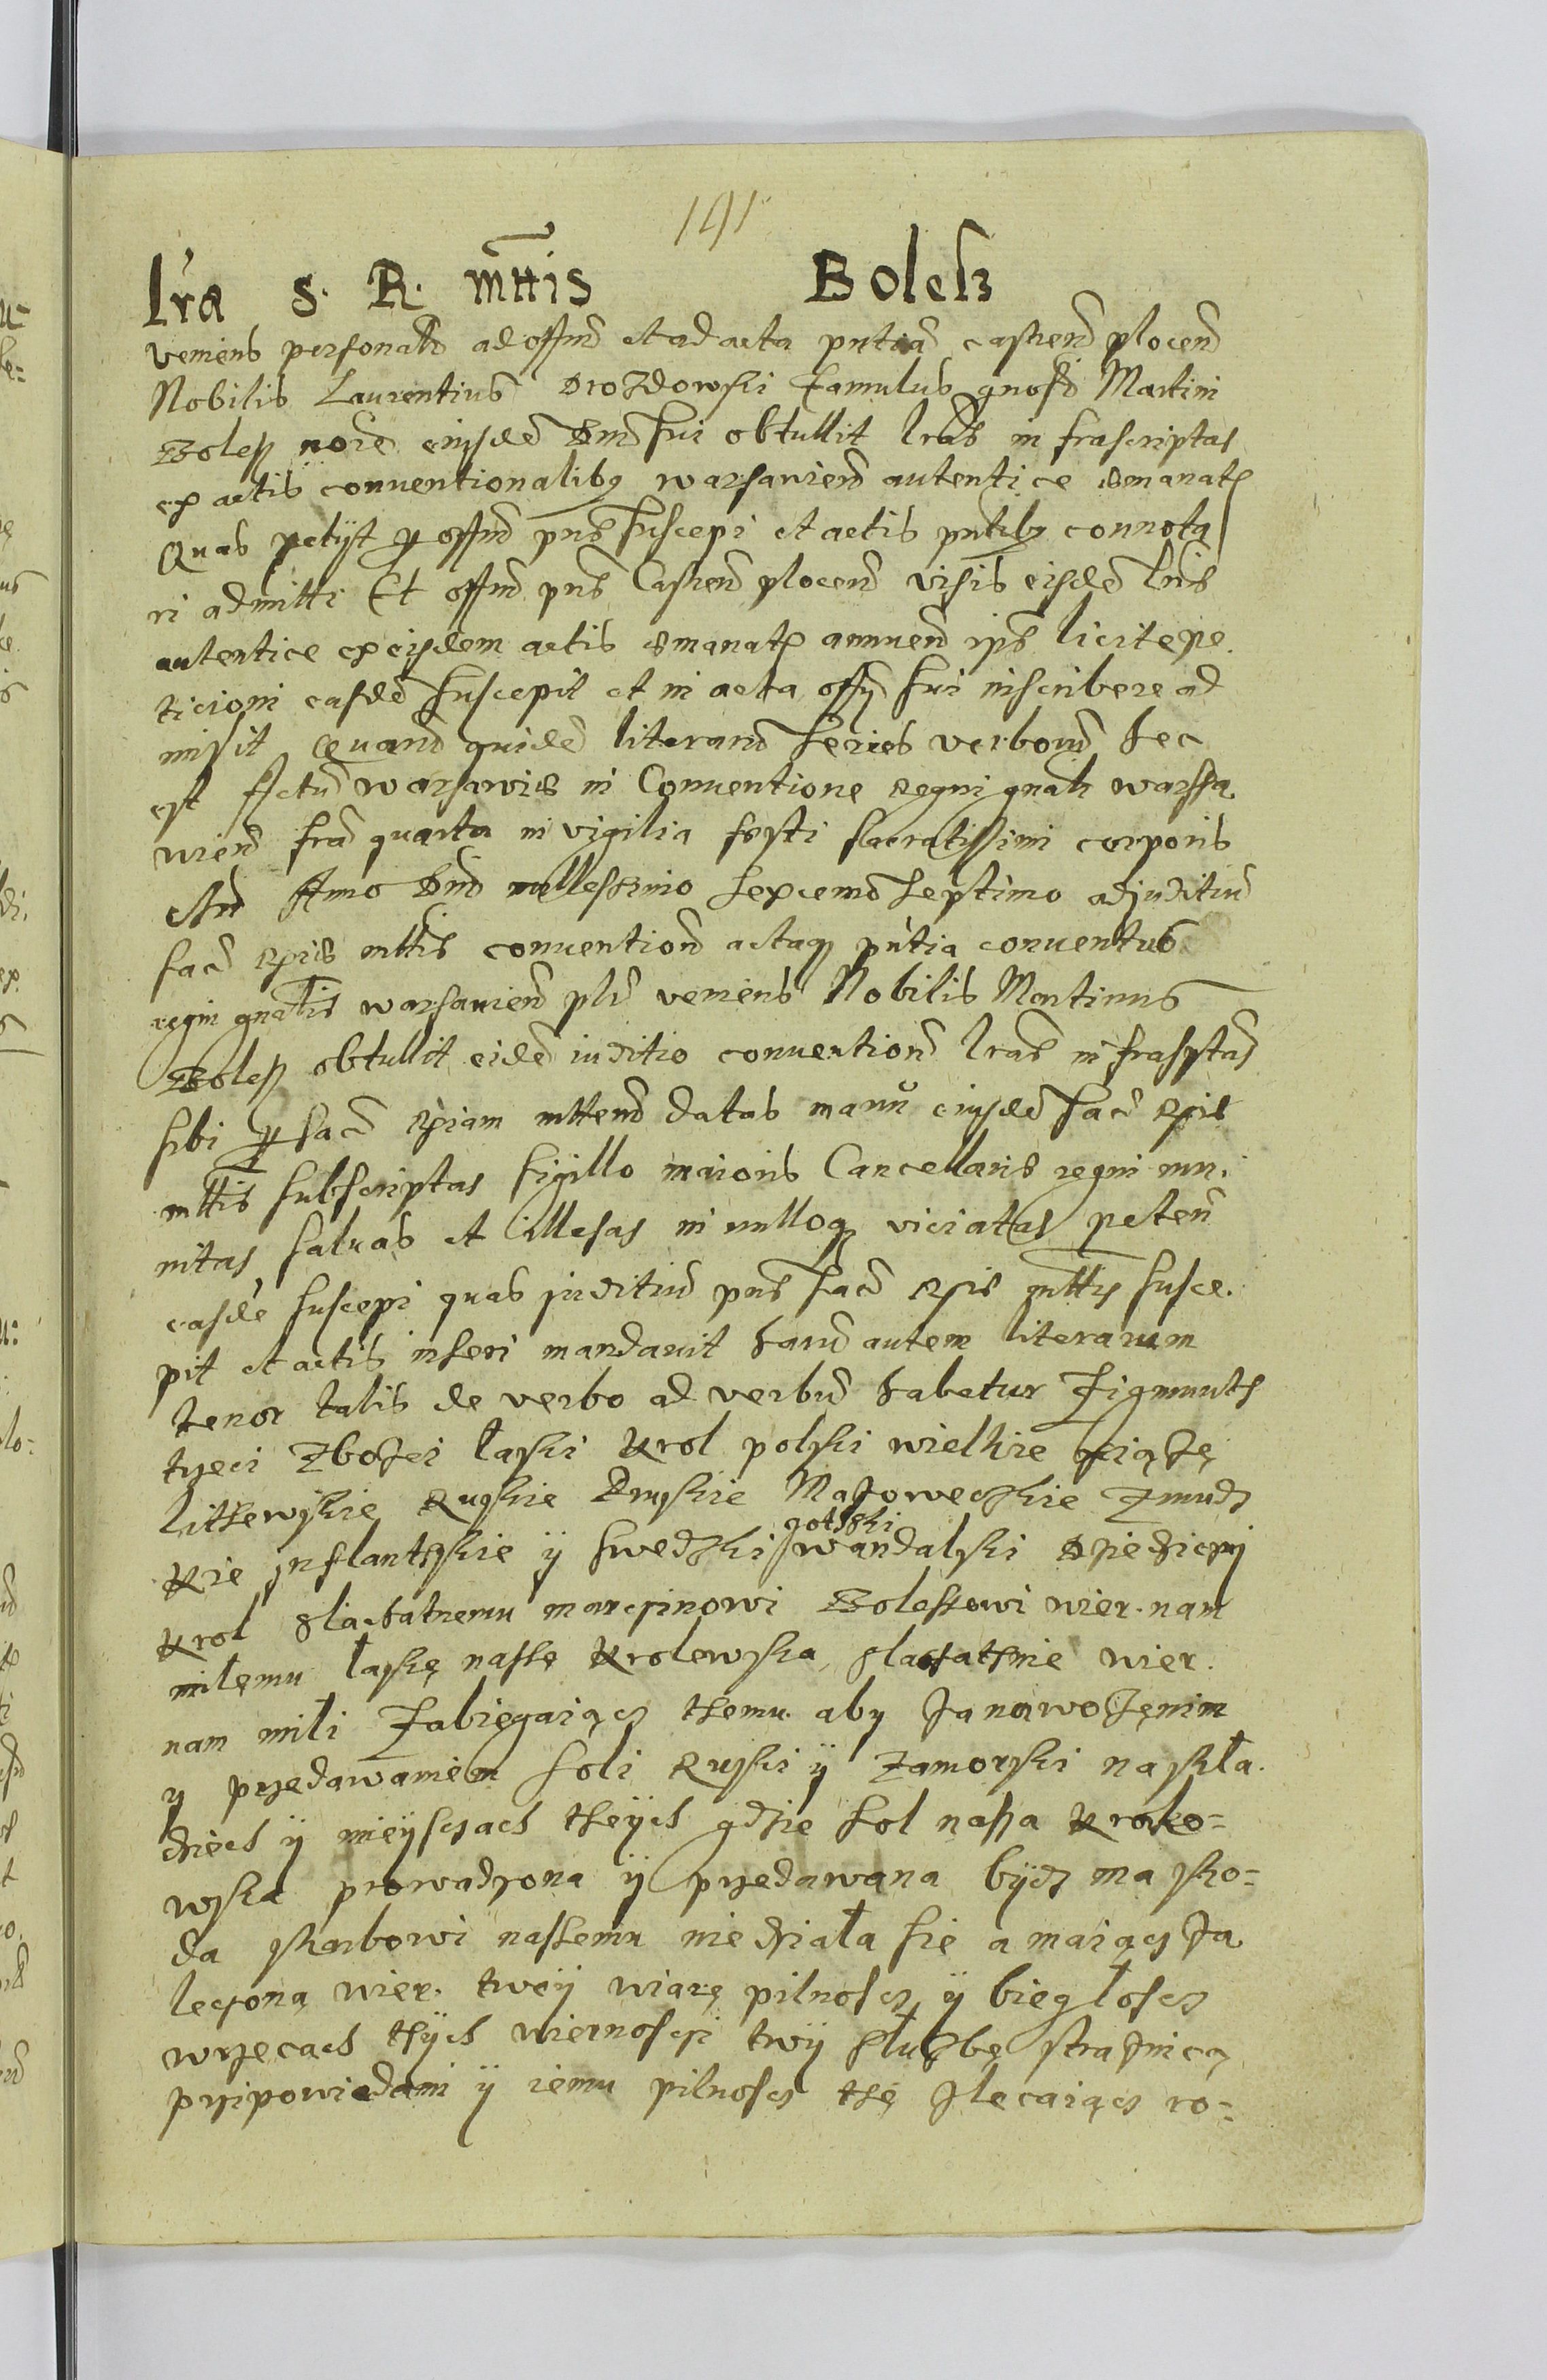 191
lra S. R. mttis Bolesz
veniens personalr ad offm et ad acta pntia castren plocen
Nobilis Laurentius Drozdowski famulus gnosi Martini
Bolesz noie eiusde Dni sui obtullit lras in frascriptas
ex actis conuentionalibq warsauien autentice emanat
Quas petyt p offm pns suscepi et actis pntibq connota
ri admitti Et offm pns Castren plocen visis eisde lris
autentice ex eisdem actis emanat annuen ips licite pe.
ticioni easde suscepit et in acta offy sui inscribere ad
misit Quarum quide literaru series verboru hec
est Actu warsawie in Conuentione regni gnali warssa.
wien fra quarta in vigilia festi sacratissimi corporis
Anno Dni millessimo sexcemo septimo ad juditiu
sac regis mttis conuention actaq pntia conuentus
regni gnalis warsauien plr veniens Nobilis Martinus
Bolesz obtullit eide iuditio conuention lras infrasptas
sibi p sac regiam mttem datas manu eiusde sac regis
mttis subscriptas sigillo maioris Cancellarie regni mu.
nitas saluas et illesas in nulloq viciatas peten
easde suscepi quas juditiu pns sac regis mttis susce.
pit et actis inseri mandauit haru autem literarum
tenor talis de verbo ad verbu habetur Zigmunth
trzeci zbozei łaski krol polski wielkie xiąże
lithewskie Ruskie Pruskie Mazoweczkie Zmudz
kie jnflantskie ÿ swedzki gotski wandalski dziedzicnj
krol slachatnemu marczinowi Boleszowi wier. nam
milemu łaske nasze krolewska, slachathnie wier.
nam mili Zabiegaiącz themu. aby za nawozenim
y przedawaniem soli Ruski ÿ zamorski na skła.
dziech ÿ mieÿsczach theÿch gdzie sol nasza krolo=
wska prowadzona ÿ przedawana bÿdz ma sko=
da skarbowi naszemu niedziała sie a maiącz za
leczoną wier. tweÿ wiarę pilnoscz ÿ biegłoscz
wrzecach thÿch wiernosczi twÿ słuzbę straznicą
przipowiedami ÿ iemu pilnoscz thę zlecaiącz ro=